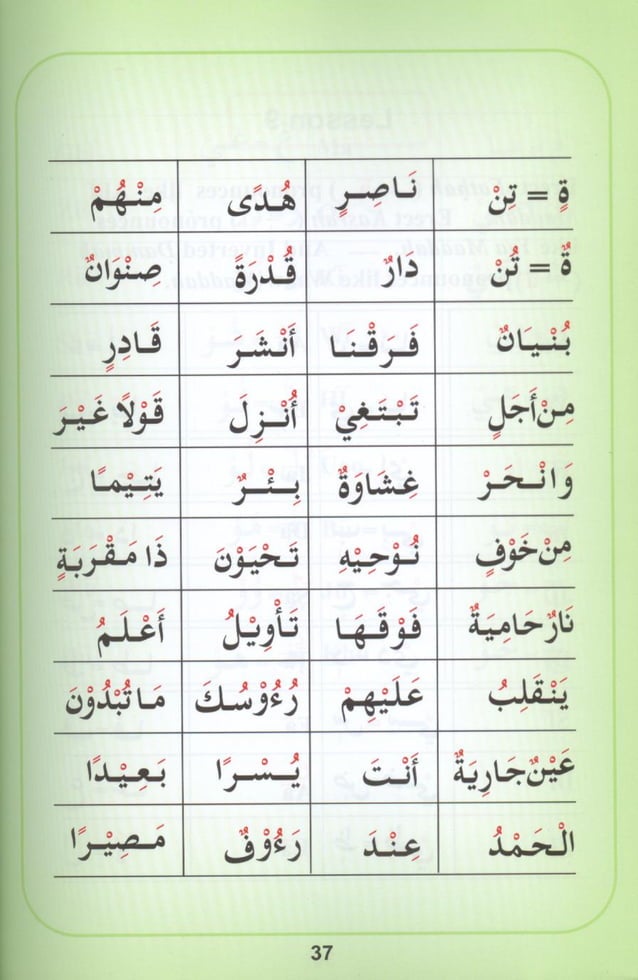 ةٍ = تِنْ نَاصِرٍ هُدًى مِنْهُمْ
ةٌ = تُنْ دَارٌ قُدْرَةً صِنْوَانٌ
بُنْيَانٌ فَرَقْنَا أَنْشَرَ قَادِرٍ
مِنْ أَجَلٍ تَبْتَغِيْ أُنْزِلَ قَوْلًا غَيْرَ
وَانْحَرْ غِشَاوَةٌ بِئْرٌ يَتِيمًا
مِنْ خَوْفٍ نُوْحِيْهِ تَحْيَوْنَ ذَا مَقْرَبَةٍ
نَارٌ حَامِيَةٌ فَوْقَهَا تَأْوِيْلُ أَعْلَمُ
يَنْقَلِبُ عَلَيْهِمْ رُءُوْسُكَ مَا تُبْدُوْنَ
عَيْنٌ جَارِيَةٌ أَنْتَ يُسْرًا بَعِيْدًا
الْحَمْدُ عِنْدَ رَءُوْفٌ مَصِيْرًا
37